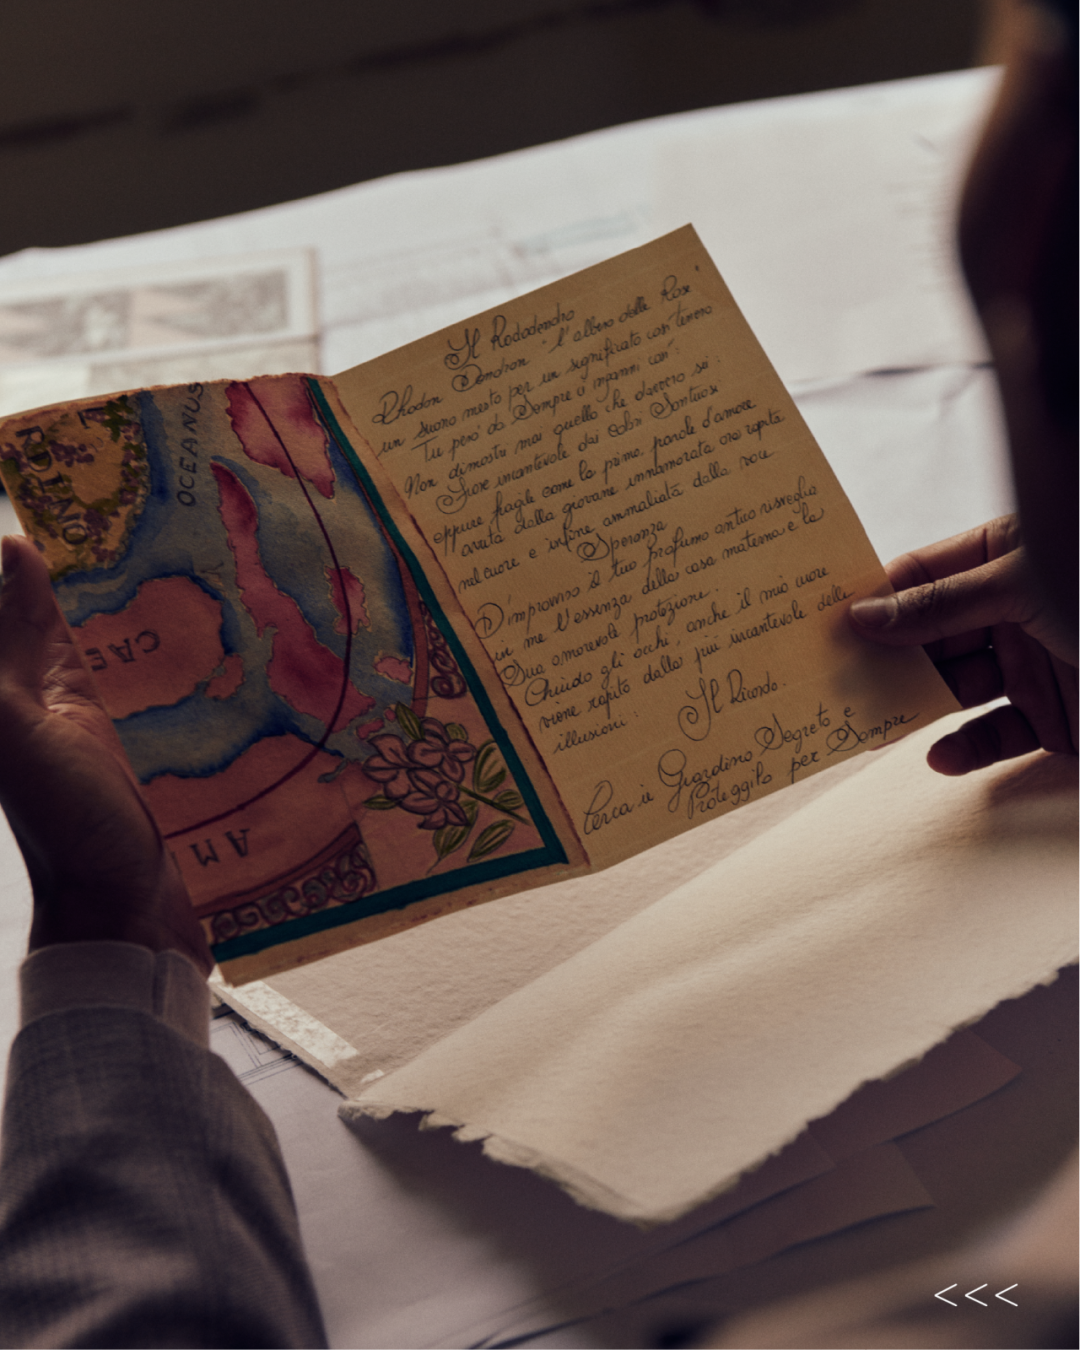 OCEANUS
RDINO
CAE
AM
Il Rododendro
Rhodon Dendron "l'albero delle Rose"
un suono mesto per un significato così tenero
Tu però da Sempre c'inganni così:
Non dimostri mai quello che davvero sei:
Fiore incantevole dai Colori Sontuosi
eppure fragile come la prima parola d'amore
dalla giovane innamorata ora rapita
nel cuore e infine ammaliata dalla sou
Speranza
D'improvviso il tuo profumo antico risveglia
in me l'essenza della casa materna e la
Sua amorevole protezione.
Chiudo gli occhi, anche il mio cuore
viene rapito dalla più incantevole delle
illusioni:
Il Ricordo.
Cerca il Giardino Segreto e
Proteggilo per Sempre
<<<